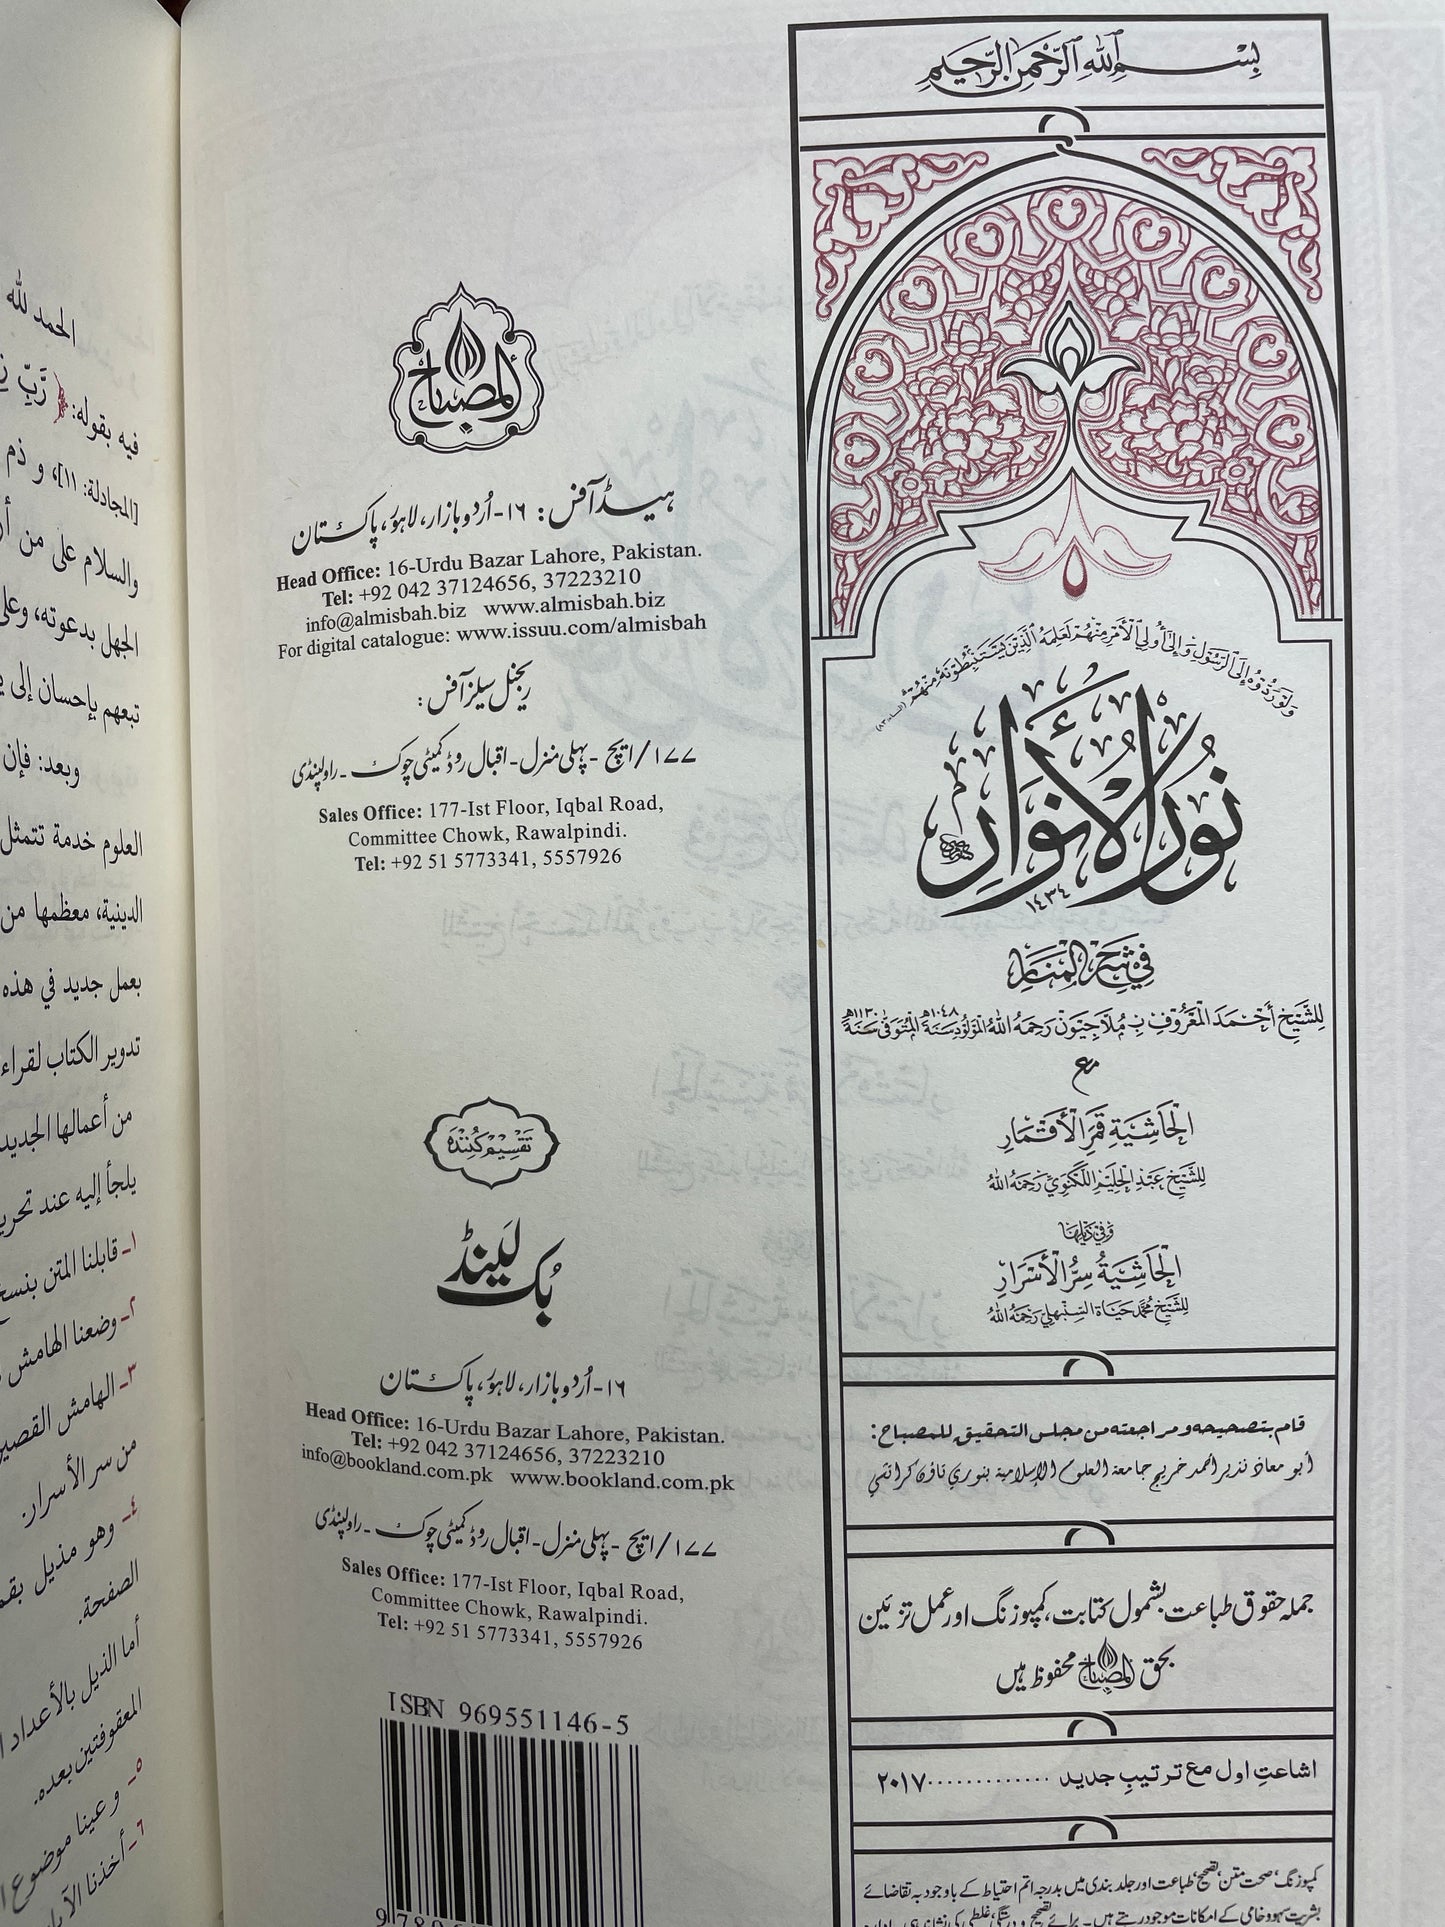 بسم الله الرحمن الرحيم
وَلَوْ رَدُّوهُ إِلَى الرَّسُولِ وَإِلَىٰ أُولِي الْأَمْرِ مِنْهُمْ لَعَلِمَهُ الَّذِينَ يَسْتَنْبِطُونَهُ مِنْهُمْ (النساء: ٨٣)
نُورُ الْأَنْوَارِ
١٤٣٤
في شَرْحِ الْمَنَارِ
لِلشَّيْخِ أَحْمَدَ الْمَعْرُوفِ بِ مُلَّا جِيْوَنْ رَحِمَهُ اللهُ الْمَوْلُوْدِ سَنَةَ ١٠٤٨هـ الْمُتَوَفّٰى سَنَةَ ١١٣٠هـ
مع
الْحَاشِيَةِ قَمَرِ الْأَقْمَارِ
لِلشَّيْخِ عَبْدِ الْحَلِيْمِ اللَّكْنَوِيْ رَحِمَهُ اللهُ
وَفِيْ ذَيْلِهَا
الْحَاشِيَةُ سِرُّ الْأَسْرَارِ
لِلشَّيْخِ مُحَمَّد حَيَاة السِّنْبَهْلِيْ رَحِمَهُ اللهُ
قام بتصحيحه ومراجعته من مجلس التحقيق للمصباح:
أبو معاذ نذير أحمد خريج جامعة العلوم الإسلامية بنوري تاؤن كراتشي
جملہ حقوق طباعت بشمول کتابت، کمپوزنگ اور عمل تزئین
بحق المصباح محفوظ ہیں
اشاعتِ اول مع ترتیبِ جدید .............. ۲۰۱۷
کمپوزنگ، صحت متن، تصحیح، طباعت اور جلد بندی میں بدرجہ اتم احتیاط کے باوجود بہ تقاضائے
بشریت سہو و خامی کے امکانات موجود رہتے ہیں۔ برائے تصحیح و درستگی غلطی کی نشاندہی
المصباح
ہیڈ آفس: ۱۶-اُردو بازار، لاہور، پاکستان
Head Office: 16-Urdu Bazar Lahore, Pakistan.
Tel: +92 042 37124656, 37223210
info@almisbah.biz www.almisbah.biz
For digital catalogue: www.issuu.com/almisbah
ریجنل سیلز آفس:
۱۷۷/ایچ - پہلی منزل - اقبال روڈ کمیٹی چوک - راولپنڈی
Sales Office: 177-Ist Floor, Iqbal Road,
Committee Chowk, Rawalpindi.
Tel: +92 51 5773341, 5557926
تقسیم کنندہ
بُک لَینڈ
۱۶-اُردو بازار، لاہور، پاکستان
Head Office: 16-Urdu Bazar Lahore, Pakistan.
Tel: +92 042 37124656, 37223210
info@bookland.com.pk www.bookland.com.pk
۱۷۷/ایچ - پہلی منزل - اقبال روڈ کمیٹی چوک - راولپنڈی
Sales Office: 177-Ist Floor, Iqbal Road,
Committee Chowk, Rawalpindi.
Tel: +92 51 5773341, 5557926
ISBN 969551146-5
الحمد لله
فيه بقوله: ﴿رَّبِّ
[المجادلة: ١١]، و ذم
والسلام على من
الجهل بدعوته، وعلى
تبعهم بإحسان إلى
وبعد: فإن
العلوم خدمة تتمثل
الدينية، معظمها من
بعمل جديد في هذه
تدوير الكتاب لقراء
من أعمالها الجديد
يلجأ إليه عند تحرير
١- قابلنا المتن بنسخ
٢- وضعنا الهامش
٣- الهامش القصير
من سر الأسرار.
٤- وهو مذيل بقم
الصفحة.
أما الذيل بالأعداد
المعقوفتين بعده.
٥- وعينا موضوع
٦- أخذنا